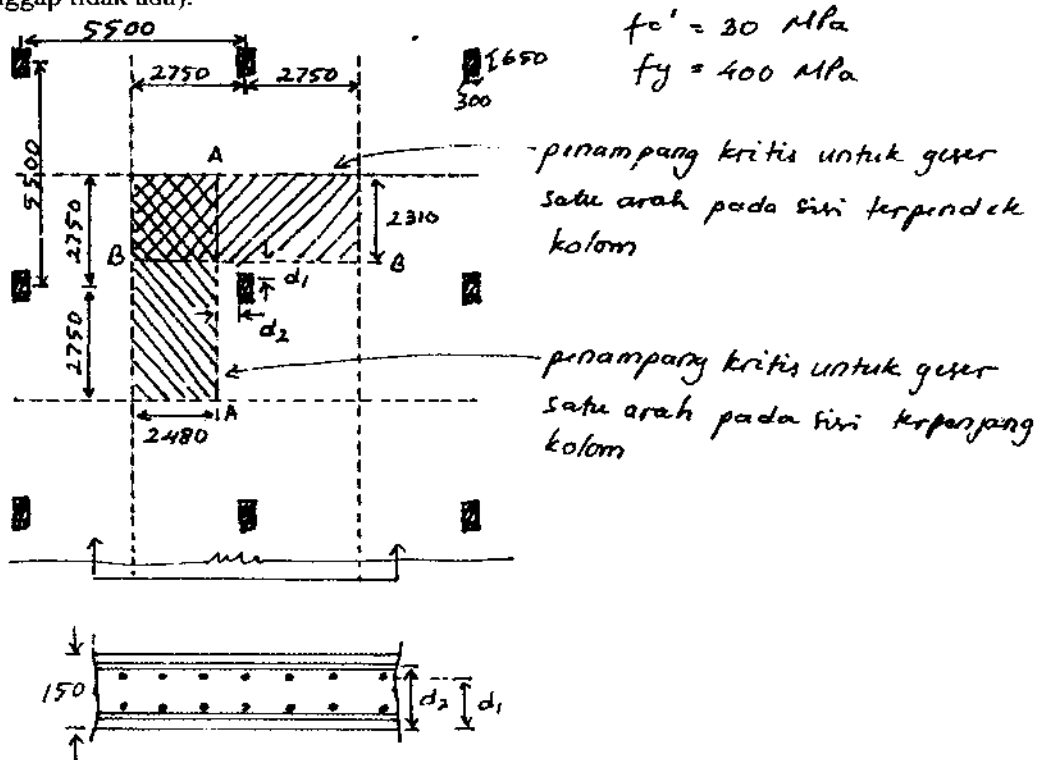 nggap tidak ada).
5500
2750 2750
650
300
fc' = 30 MPa
fy = 400 MPa
5500
2750
2750
A
B B
2310
d1
d2
A
2480
penampang kritis untuk geser
satu arah pada sisi terpendek
kolom
penampang kritis untuk geser
satu arah pada sisi terpanjang
kolom
150
d2 d1